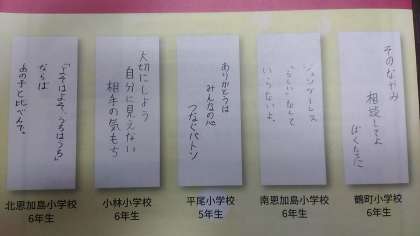 そのなやみ
相談してよ
ぼくたちに
鶴町小学校
6年生
ジェンダーレス
「らしい」なんて
いらないよ。
南恩加島小学校
6年生
ありがとうは
みんなの心
つなぐバトン
平尾小学校
5年生
大切にしよう
自分に見えない
相手の気もち
小林小学校
6年生
「よそはよそ、うちはうち」
ならば
あの子と比べんで。
北恩加島小学校
6年生